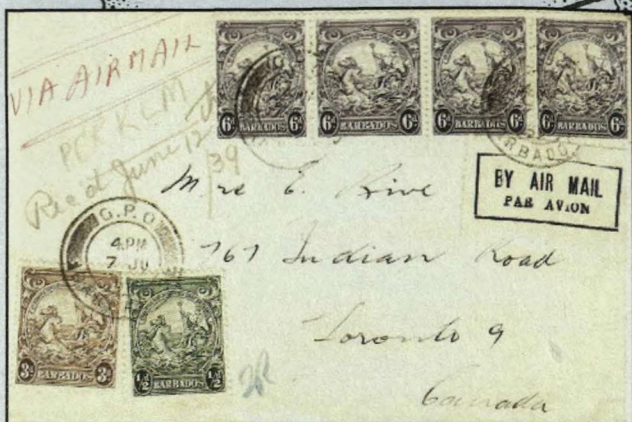 VIA AIRMAIL
PER KLM
Rec'd June 12th
/39
6d BARBADOS 6d
6d BARBADOS 6d
6d BARBADOS 6d
6d BARBADOS 6d
BARBADOS
BY AIR MAIL
PAR AVION
Mrs E. Hive
767 Indian Road
Toronto 9
Canada
G.P.O
4PM
7 JU
3d BARBADOS 3d
½d BARBADOS ½d